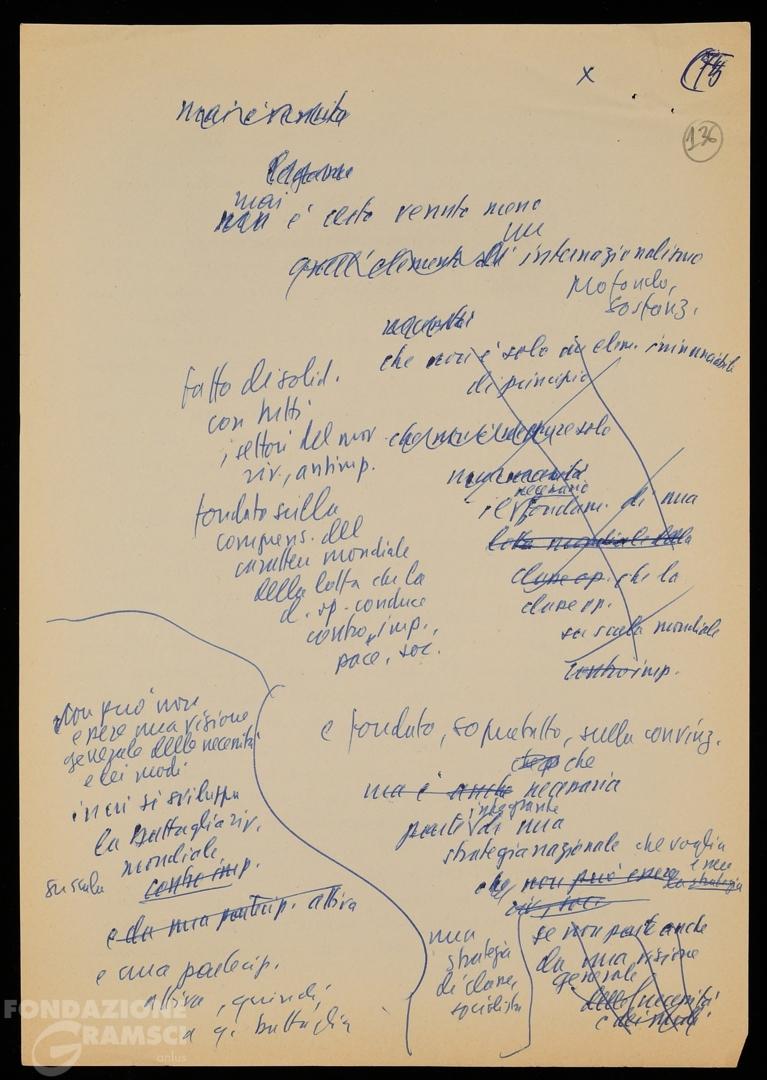 x
(75
136
mai è venuta
mai
non è certo venuto meno
un
quell'elemento di internazionalismo
profondo,
sostanz.
che non è solo un elem. irrinunciabile
di principio
fatto di solid.
con tutti
i settori del mov.
riv., antimp.
fondato sulla
comprens. del
carattere mondiale
della lotta che la
cl. op. conduce
contro imp.,
pace, soc.
che non è neppure solo
necessario
il fondam. di una
lotta mondiale della
classe op. che la
classe op.
su scala mondiale
contro imp.
Non può non
essere una visione
generale delle necessità
e dei modi
in cui si sviluppa
la battaglia riv.
mondiale
su scala
contro imp.
e da una partecip. attiva
e una partecip.
attiva, quindi,
a q. battaglia
e fondato, soprattutto, sulla convinz.
che
ma è anche necessaria
integrante
parte di una
strategia nazionale che voglia
essere
che non può essere
la strategia
una
strategia
di classe,
socialista
se non parte anche
da una visione
generale
delle necessità
e dei modi
FONDAZIONE
GRAMSCI
onlus